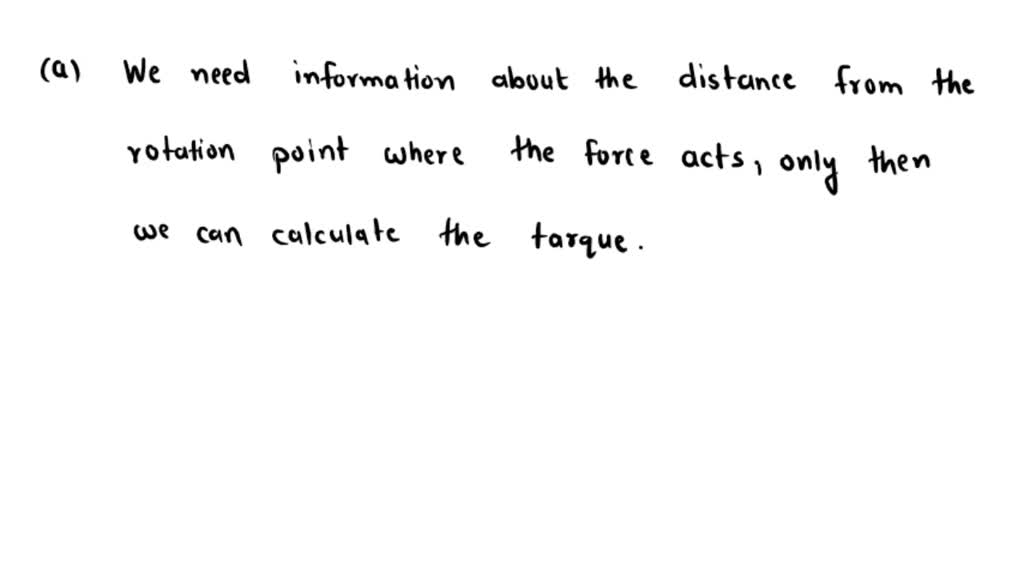 (a) We need information about the distance from the
rotation point where the force acts, only then
we can calculate the tarque.